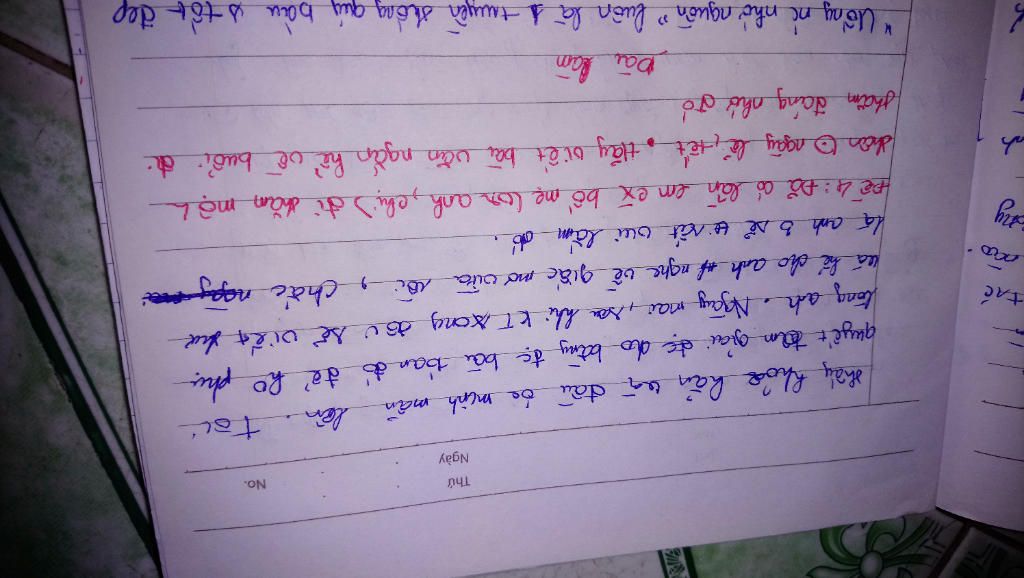 Thứ
Ngày
No.
thấy khoẻ hẳn và đầu óc minh mẫn lên. Tôi
quyết tâm giải đc do bằng đc bài toán đó để ko phụ
lòng anh. Ngày mai, sau khi KT xong tôi sẽ viết thư
và kể cho anh nghe về giấc mơ vừa rồi, chắc
là anh sẽ rất vui lắm đó.
Đề 4: Đã có lần em cx bố mẹ (or anh, chị) đi thăm mộ
thân ngày lễ, tết. Hãy viết bài văn ngắn kể về buổi đi
thăm đáng nhớ đó
Bài làm
"Uống nc nhớ nguồn" luôn là 1 truyền thống quý báu & tốt đẹp